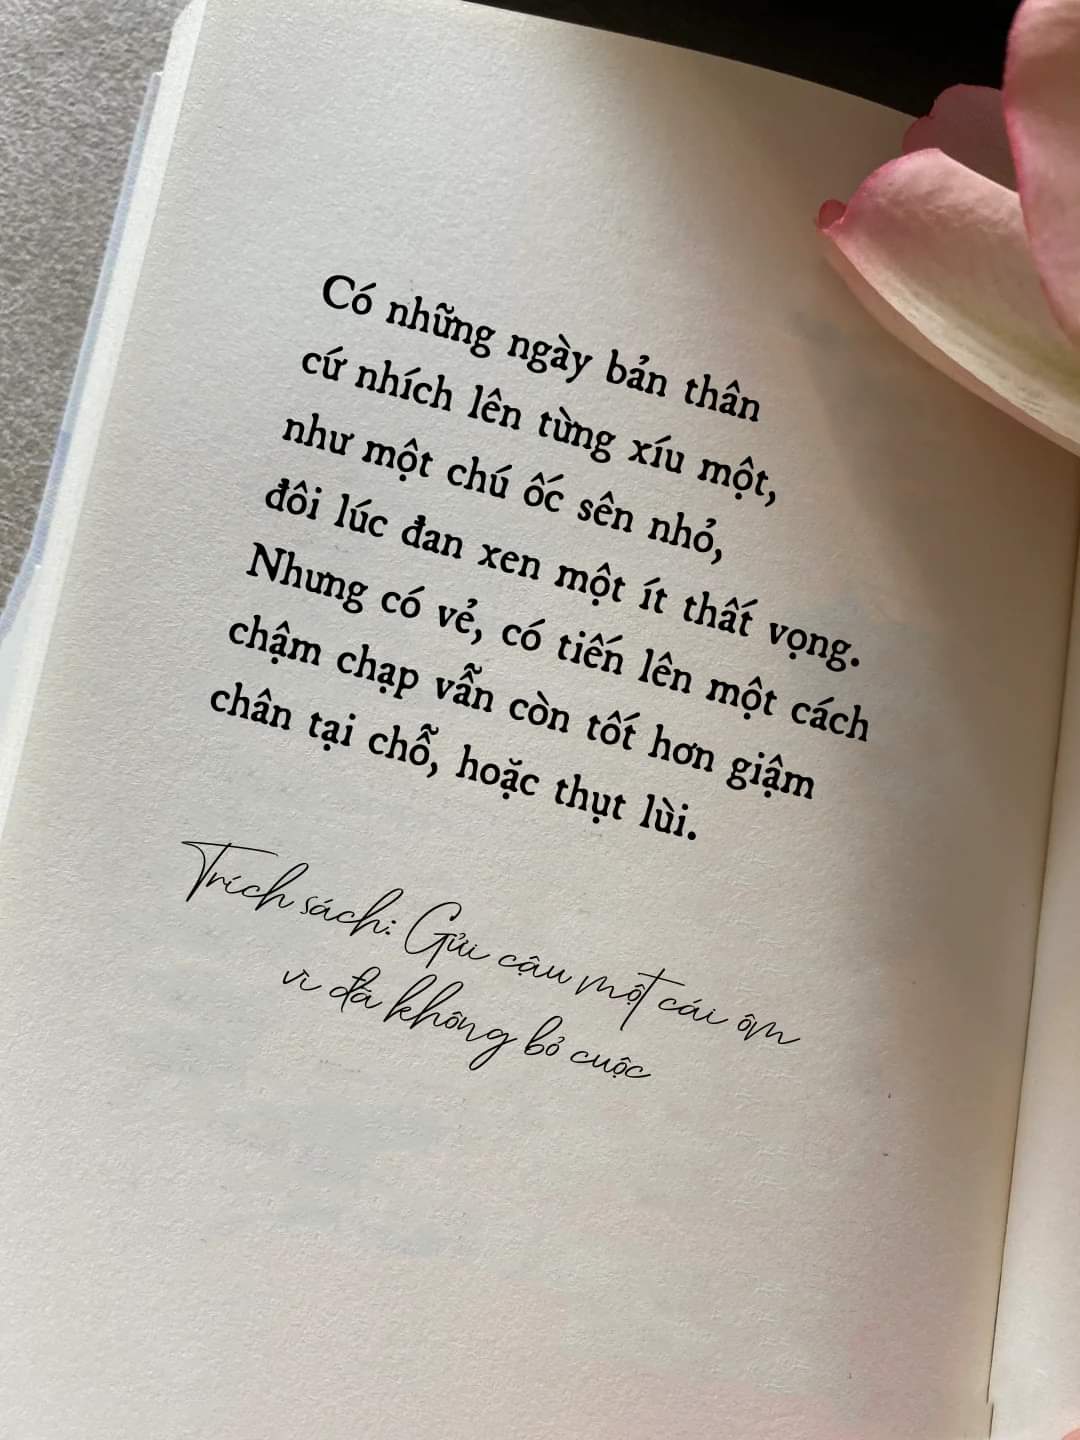 Có những ngày bản thân
cứ nhích lên từng xíu một,
như một chú ốc sên nhỏ,
đôi lúc đan xen một ít thất vọng.
Nhưng có vẻ, có tiến lên một cách
chậm chạp vẫn còn tốt hơn giậm
chân tại chỗ, hoặc thụt lùi.
Trích sách: Gửi cậu một cái ôm
vì đã không bỏ cuộc